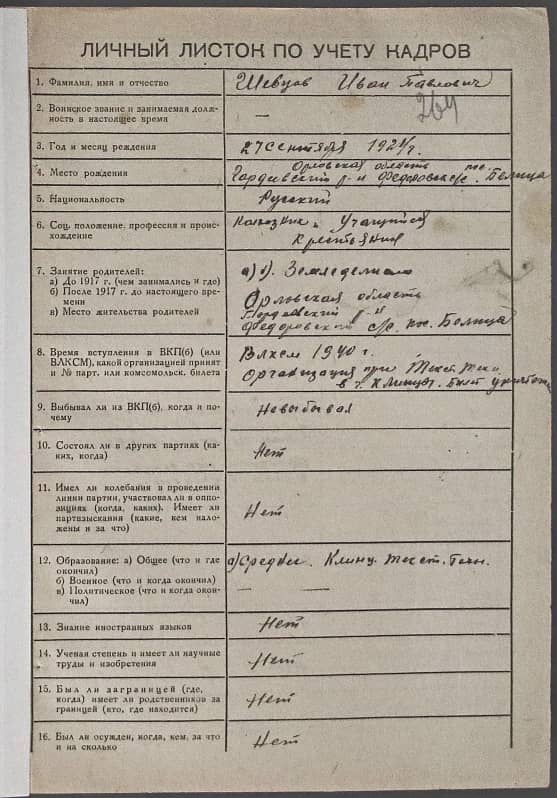 ЛИЧНЫЙ ЛИСТОК ПО УЧЕТУ КАДРОВ
1. Фамилия, имя и отчество
Шевцов Иван Павлович
264
2. Воинское звание и занимаемая долж-
ность в настоящее время
—
3. Год и месяц рождения
27 Сентября 1921 г.
4. Место рождения
Орловская область
Гордеевский р-н Федоровск с/с. пос. Белица
5. Национальность
Русский
6. Соц. положение, профессия и проис-
хождение
Учащийся
Крестьянин
7. Занятие родителей:
а) До 1917 г. (чем занимались и где)
б) После 1917 г. до настоящего вре-
мени
в) Место жительства родителей
а) б). Земледелие
Орловская область
Гордеевский р-н
Федоровский с/р. пос. Белица
8. Время вступления в ВКП(б) (или
ВЛКСМ), какой организацией принят
и № парт. или комсомольск. билета
Влксм 1940 г.
Организация при Текст. Техн.
в г. Клинцы. билет
9. Выбывал ли из ВКП(б), когда и по-
чему
Невыбывал
10. Состоял ли в других партиях (ка-
ких, когда)
Нет
11. Имел ли колебания в проведении
линии партии, участвовал ли в оппо-
зициях (когда, каких). Имеет ли
партвзыскания (какие, кем нало-
жены и за что)
Нет
12. Образование: а) Общее (что и где
окончил)
б) Военное (что и когда окончил)
в) Политическое (что и когда окон-
чил)
а) Среднее. Клинц. Текст. Техн.
— —
13. Знание иностранных языков
Нет
14. Ученая степень и имеет ли научные
труды и изобретения
Нет
15. Был ли заграницей (где,
когда) имеет ли родственников за
границей (кто, где находится)
Нет
16. Был ли осужден, когда, кем, за что
и на сколько
Нет